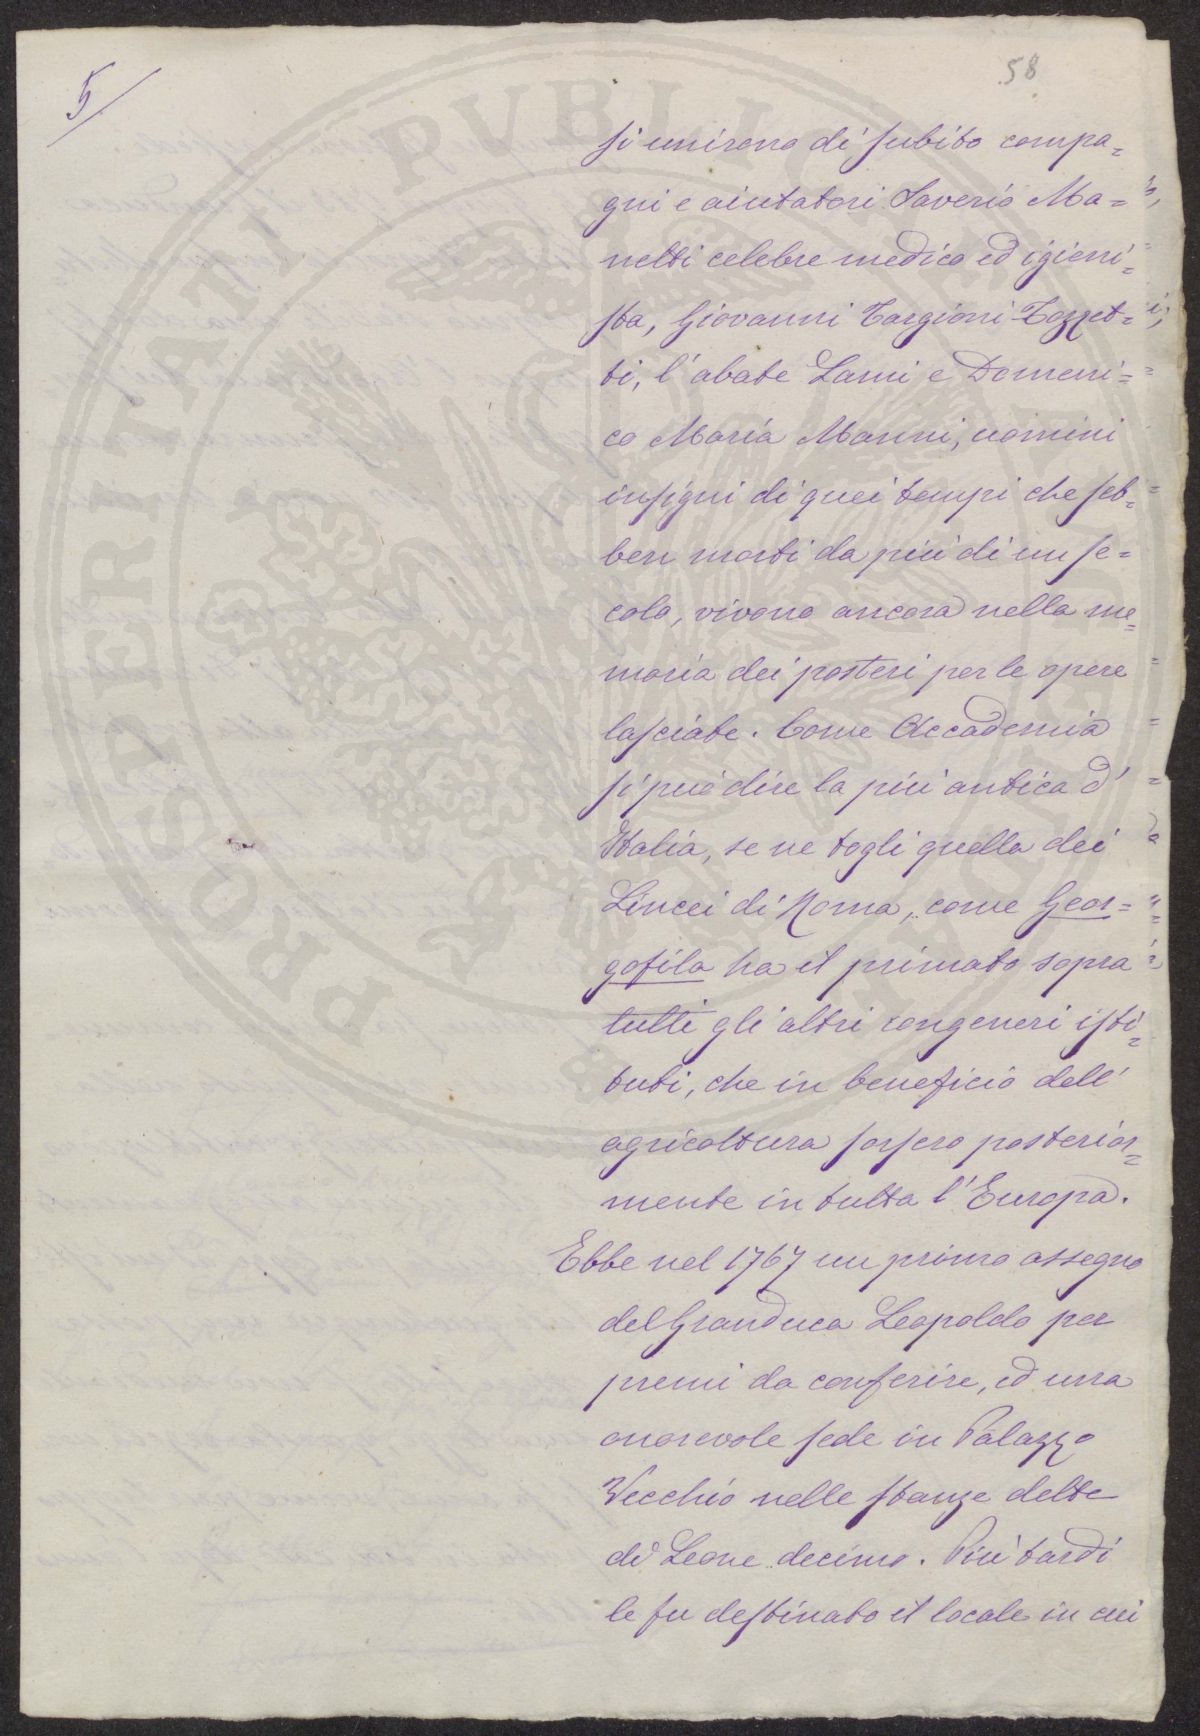 5/
58
si unirono di subito compa=
gni e aiutatori Saverio Ma=
netti celebre medico ed igieni=
sta, Giovanni Targioni-Tozzet=
ti, l'abate Lami e Domeni=
co Maria Manni, uomini
insigni di quei tempi che seb=
ben morti da più di un se=
colo, vivono ancora nella me=
moria dei posteri per le opere
lasciate. Come Accademia
si può dire la più antica d'
Italia, se ne togli quella dei
Lincei di Roma, come Geor=
gofila ha il primato sopra
tutti gli altri congeneri isti=
tuti, che in beneficio dell'
agricoltura sorsero posterior=
mente in tutta l'Europa.
Ebbe nel 1767 un primo assegno
del Granduca Leopoldo per
premi da conferire, ed una
onorevole sede in Palazzo
Vecchio nelle stanze dette
di Leone decimo. Più tardi
le fu destinato il locale in cui
PROSPERITATI PUBLICAE AUGENDAE